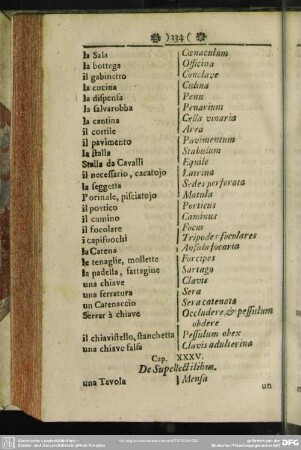 )334(
la Sala | Cœnaculum
la bottega | Officina
il gabinetto | Conclave
la cucina | Culina
la dispensa | Penu
la salvarobba | Penarium
la cantina | Cella vinaria
il cortile | Area
il pavimento | Pavimentum
la stalla | Stabulum
Stalla da Cavalli | Equile
il necessario, cacatojo | Latrina
la seggetta | Sedes perforata
l'orinale, pisciatojo | Matula
il portico | Porticus
il camino | Caminus
il focolare | Focus
i capifuochi | Tripodes focolares
la Catena | Ansula focaria
le tenaglie, mollette | Forcipes
la padella, sartagine | Sartago
una chiave | Clavis
una serratura | Sera
un Catenaccio | Sera catenata
Serrar à chiave | Occludere, & pessulum
obdere
il chiavistello, stanchetta | Pessulum obex
una chiave falsa | Clavis adulterina
Cap. XXXV.
De Supellectilibus.
una Tavola | Mensa
un